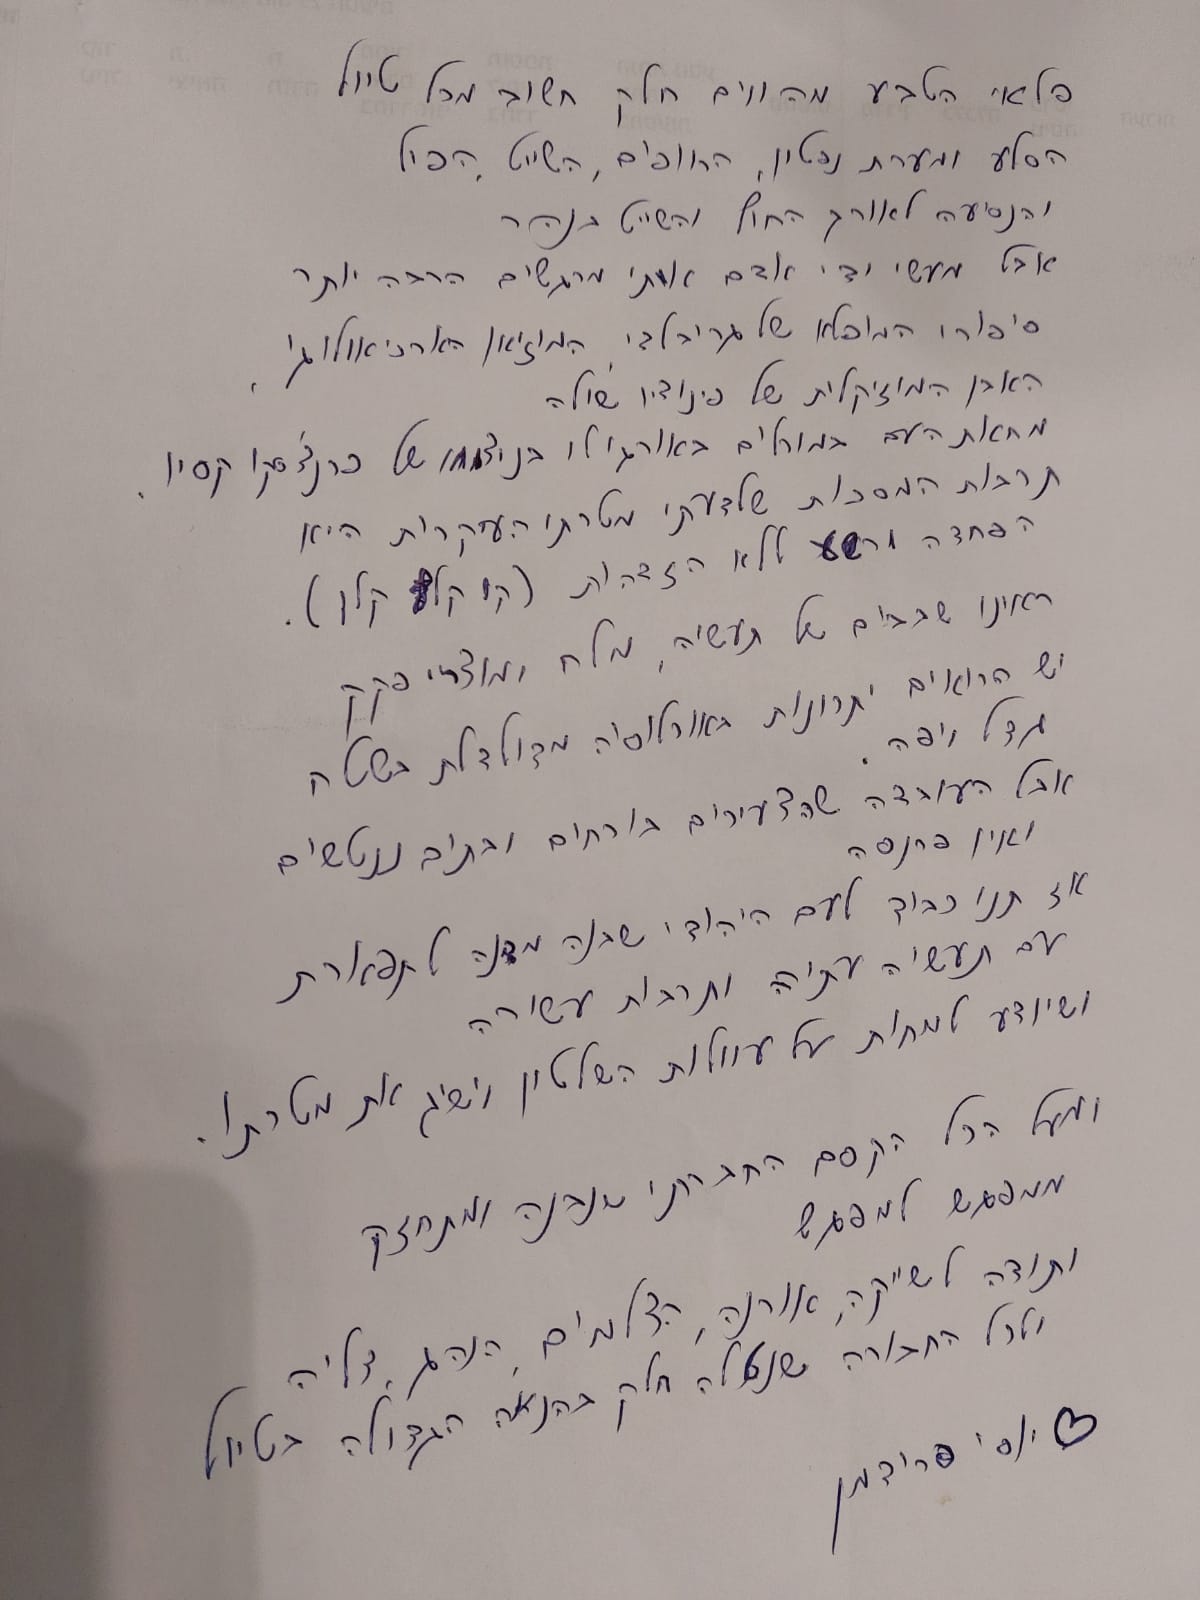 פלאי הטבע מהווים חלק חשוב מכל טיול
הסלע ומערת נפטון, החופים, השייט, הפיל
והנסיעה לאורך החוף והשייט בנהר
אבל מעשי ידי אדם אותי מרגשים הרבה יותר
סיפורו המופלא של גריבלדי, המוזיאון הארכיאולוגי,
האבן המוזיקלית של פינוציו שולה
מחאת העם במורלים באורגוזולו בניצוחו של פרנצ'סקו
תרבות המסכות שלדעתי מטרתו העיקרית היא
הפחדה ורשע ללא הזדהות (קו קלוס קלן).
ראינו שבבים של תעשיה, מלח ומוצרי פקק
יש הרואים יתרונות באוכלוסיה מדולדלת בשטח
גדל ויפה.
אבל העובדה שהצעירים בורחים ובתים ננטשים
ואין פרנסה
אז תנו כבוד לעם היהודי שבנה מדינה לתפארת
עם תעשיה ותרבות עשירה
ושיודע למחות על עוולות השלטון וישיג את מטרתו.
ומעל הכל הקסם החברתי שנבנה ומתחזק
ממפגש למפגש
ותודה לשייקה, אורנה, הצלמים, הנהג, דליה
ולכל החבורה שנטלה חלק בהנאה הגדולה בטיול
♡ יוסי פרידמן